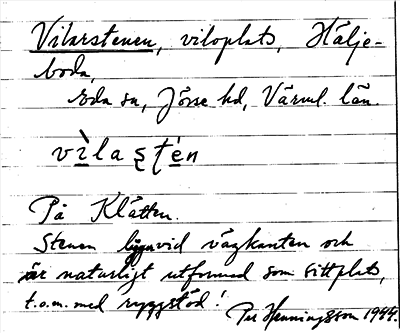 Vilarstenen, viloplats, Hälje-
boda,
Eda sn, Jösse hd, Värml. län.
vìla ʂt́én
På Klätten.
Stenen ligger vid vägkanten och
är naturligt utformad som sittplats,
t.o.m. med ryggstöd!
Per Henningsson 1944.